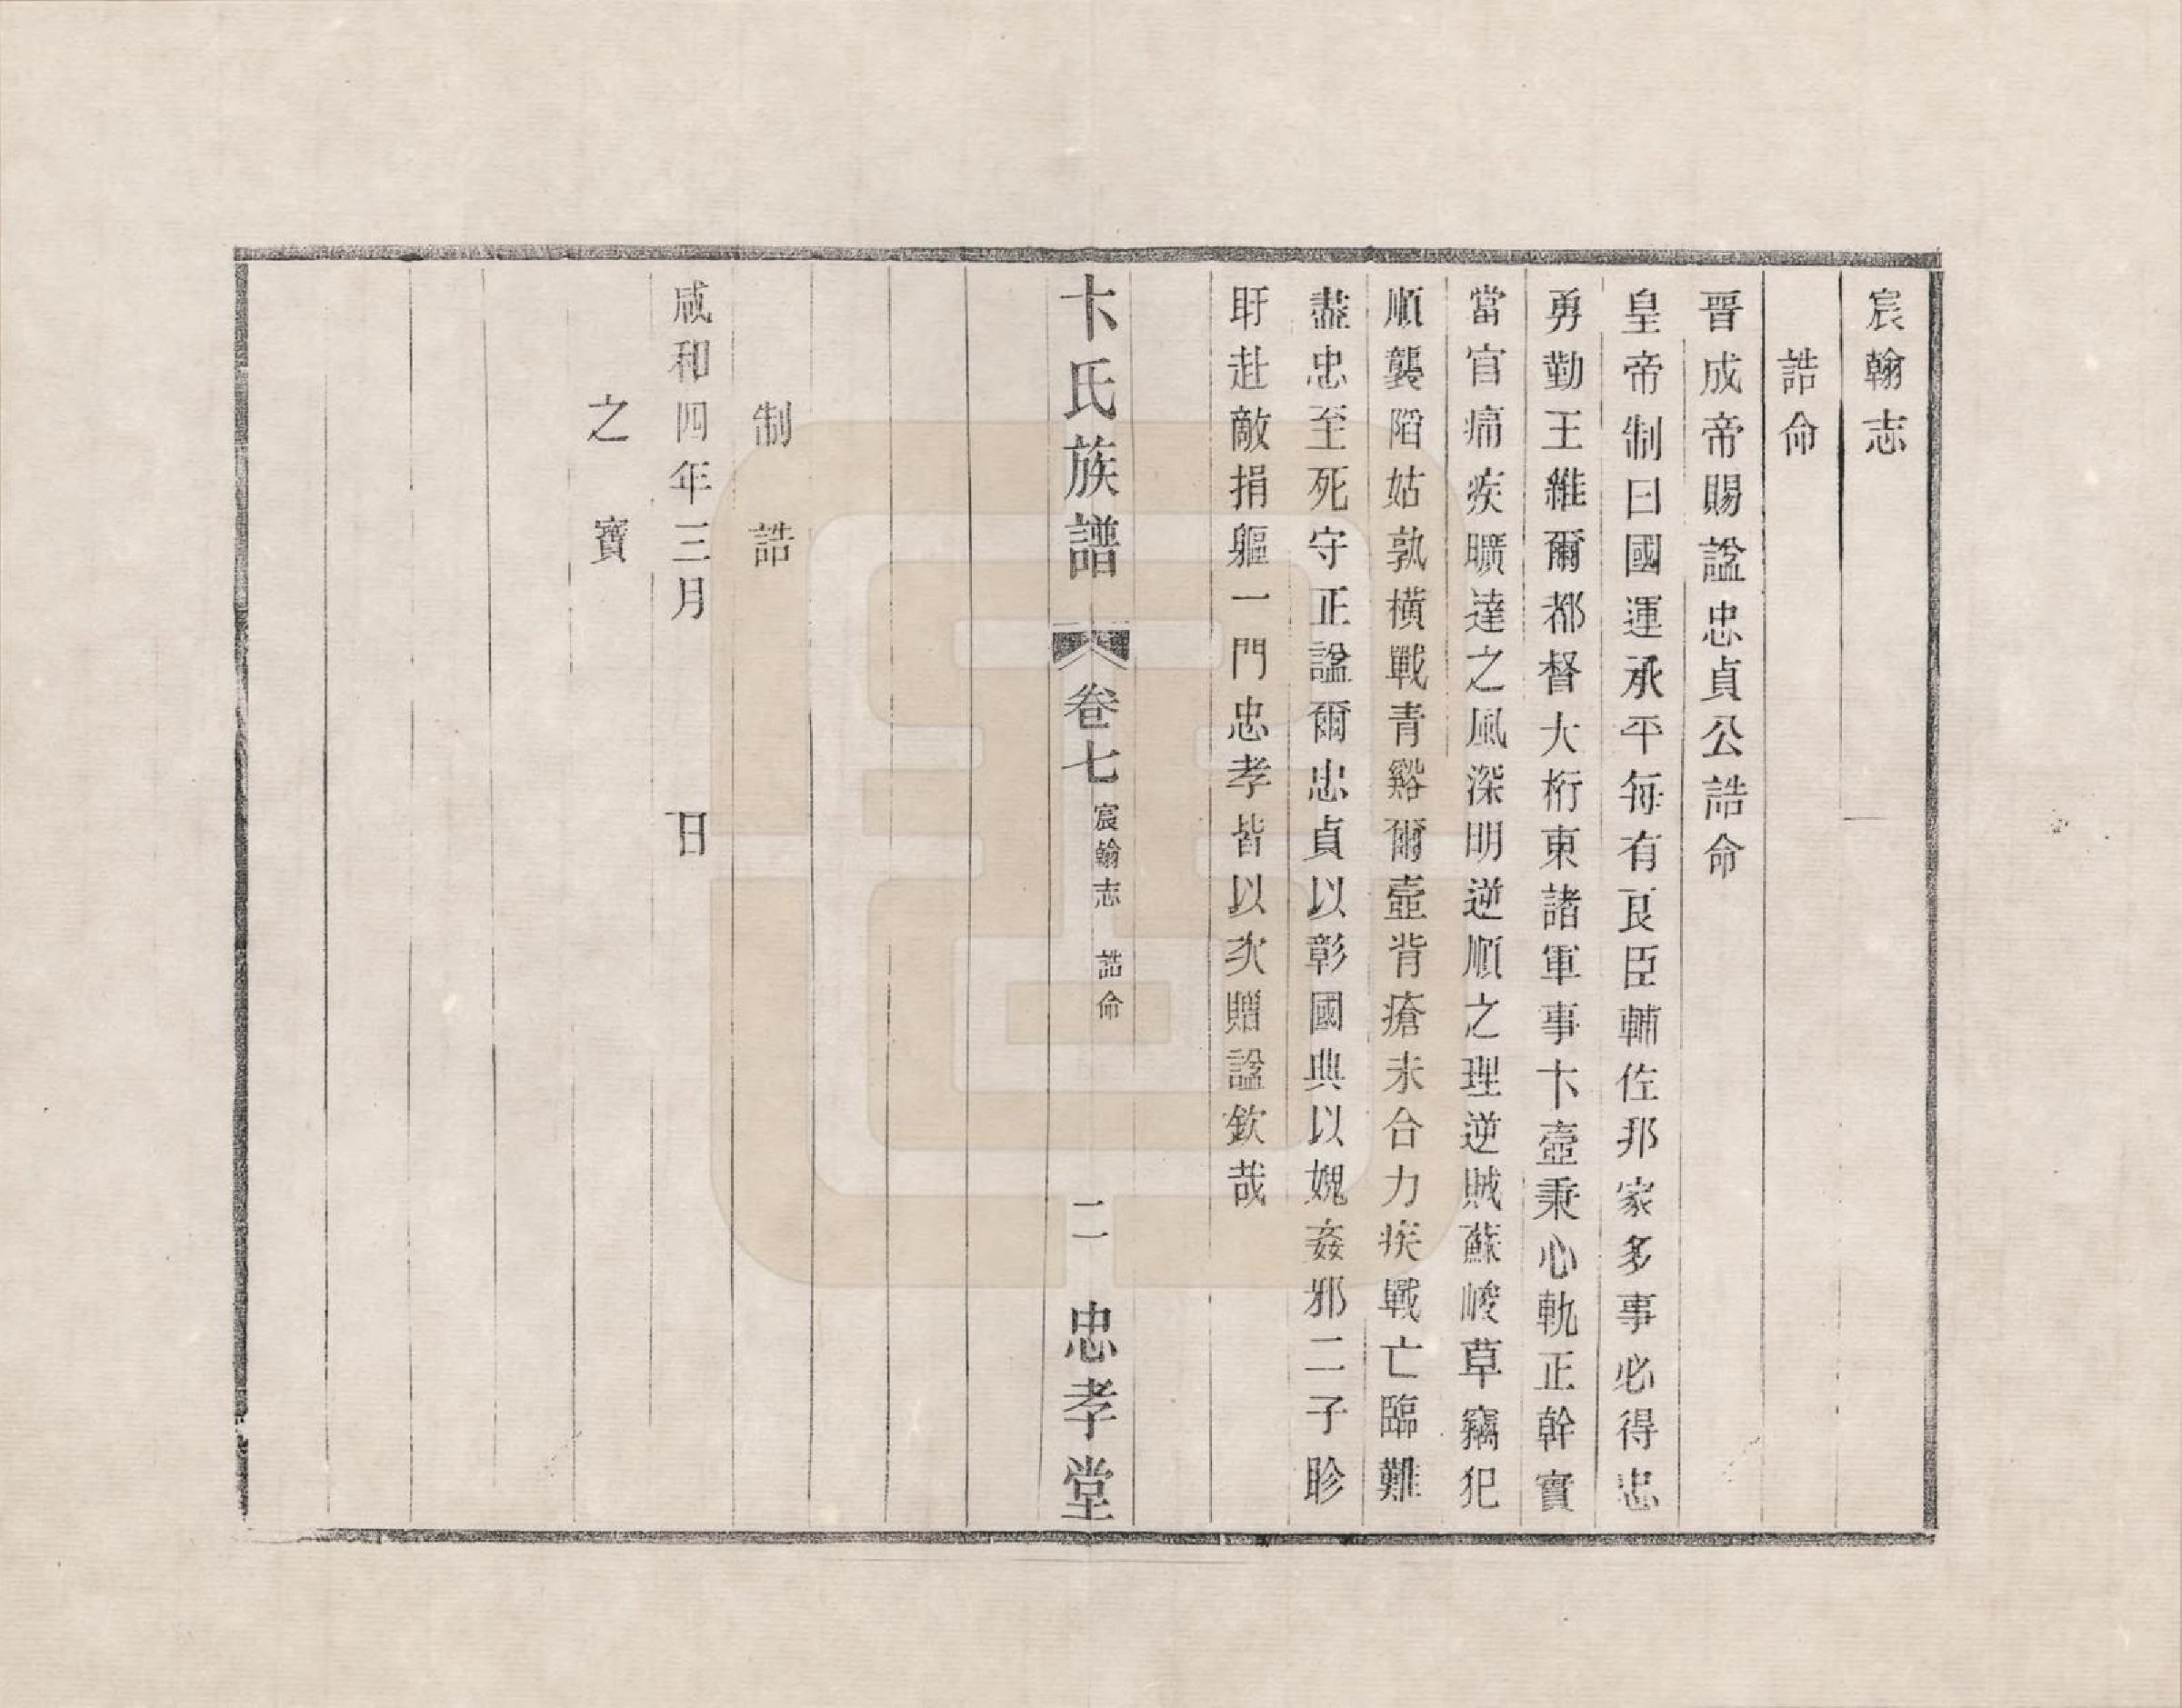 宸翰志
誥命
晋成帝賜諡忠貞公誥命
皇帝制曰國運承平每有良臣輔佐邦家多事必得忠
勇勤王維爾都督大桁東諸軍事卞壼秉心軌正幹實
當官痛疾曠達之風深明逆順之理逆賊蘇峻草竊犯
順襲䧟姑孰橫戰青谿爾壼背瘡未合力疾戰亡臨難
盡忠至死守正諡爾忠貞以彰國典以媿姦邪二子眕
盱赴敵捐軀一門忠孝皆以次贈諡欽哉
卞氏族譜 卷七 宸翰志 誥命 二 忠孝堂
制誥
咸和四年三月 日
之寶